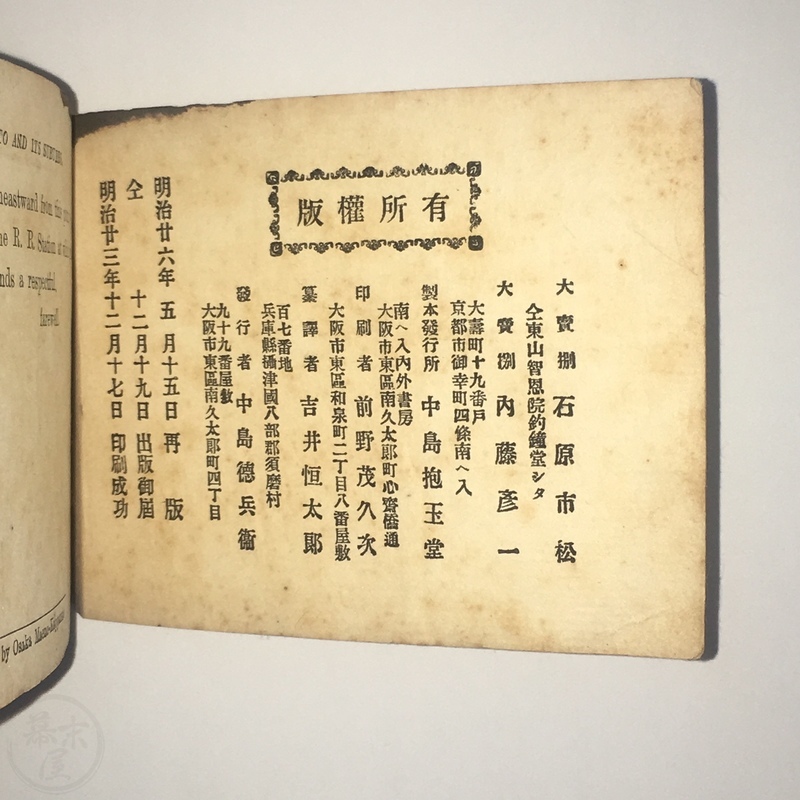 AND ITS
from this
R. R. Station at
a respectful,
farewell
by Osaka
版權所有
明治廿三年十二月十七日 印刷成功
仝 十二月十九日 出版御届
明治廿六年 五月十五日 再版
大阪市東區南久太郎町四丁目
九十九番屋敷
發行者 中島德兵衞
兵庫縣攝津國八部郡須磨村
百七番地
纂譯者 吉井恒太郎
大阪市東區和泉町二丁目八番屋敷
印刷者 前野茂久次
大阪市東區南久太郎町心齋橋通
南ヘ入內外書房
製本發行所 中島抱玉堂
京都市御幸町四條南ヘ入
大壽町十九番戸
大賣捌 內藤彥一
仝東山智恩院釣鐘堂シタ
大賣捌 石原市松